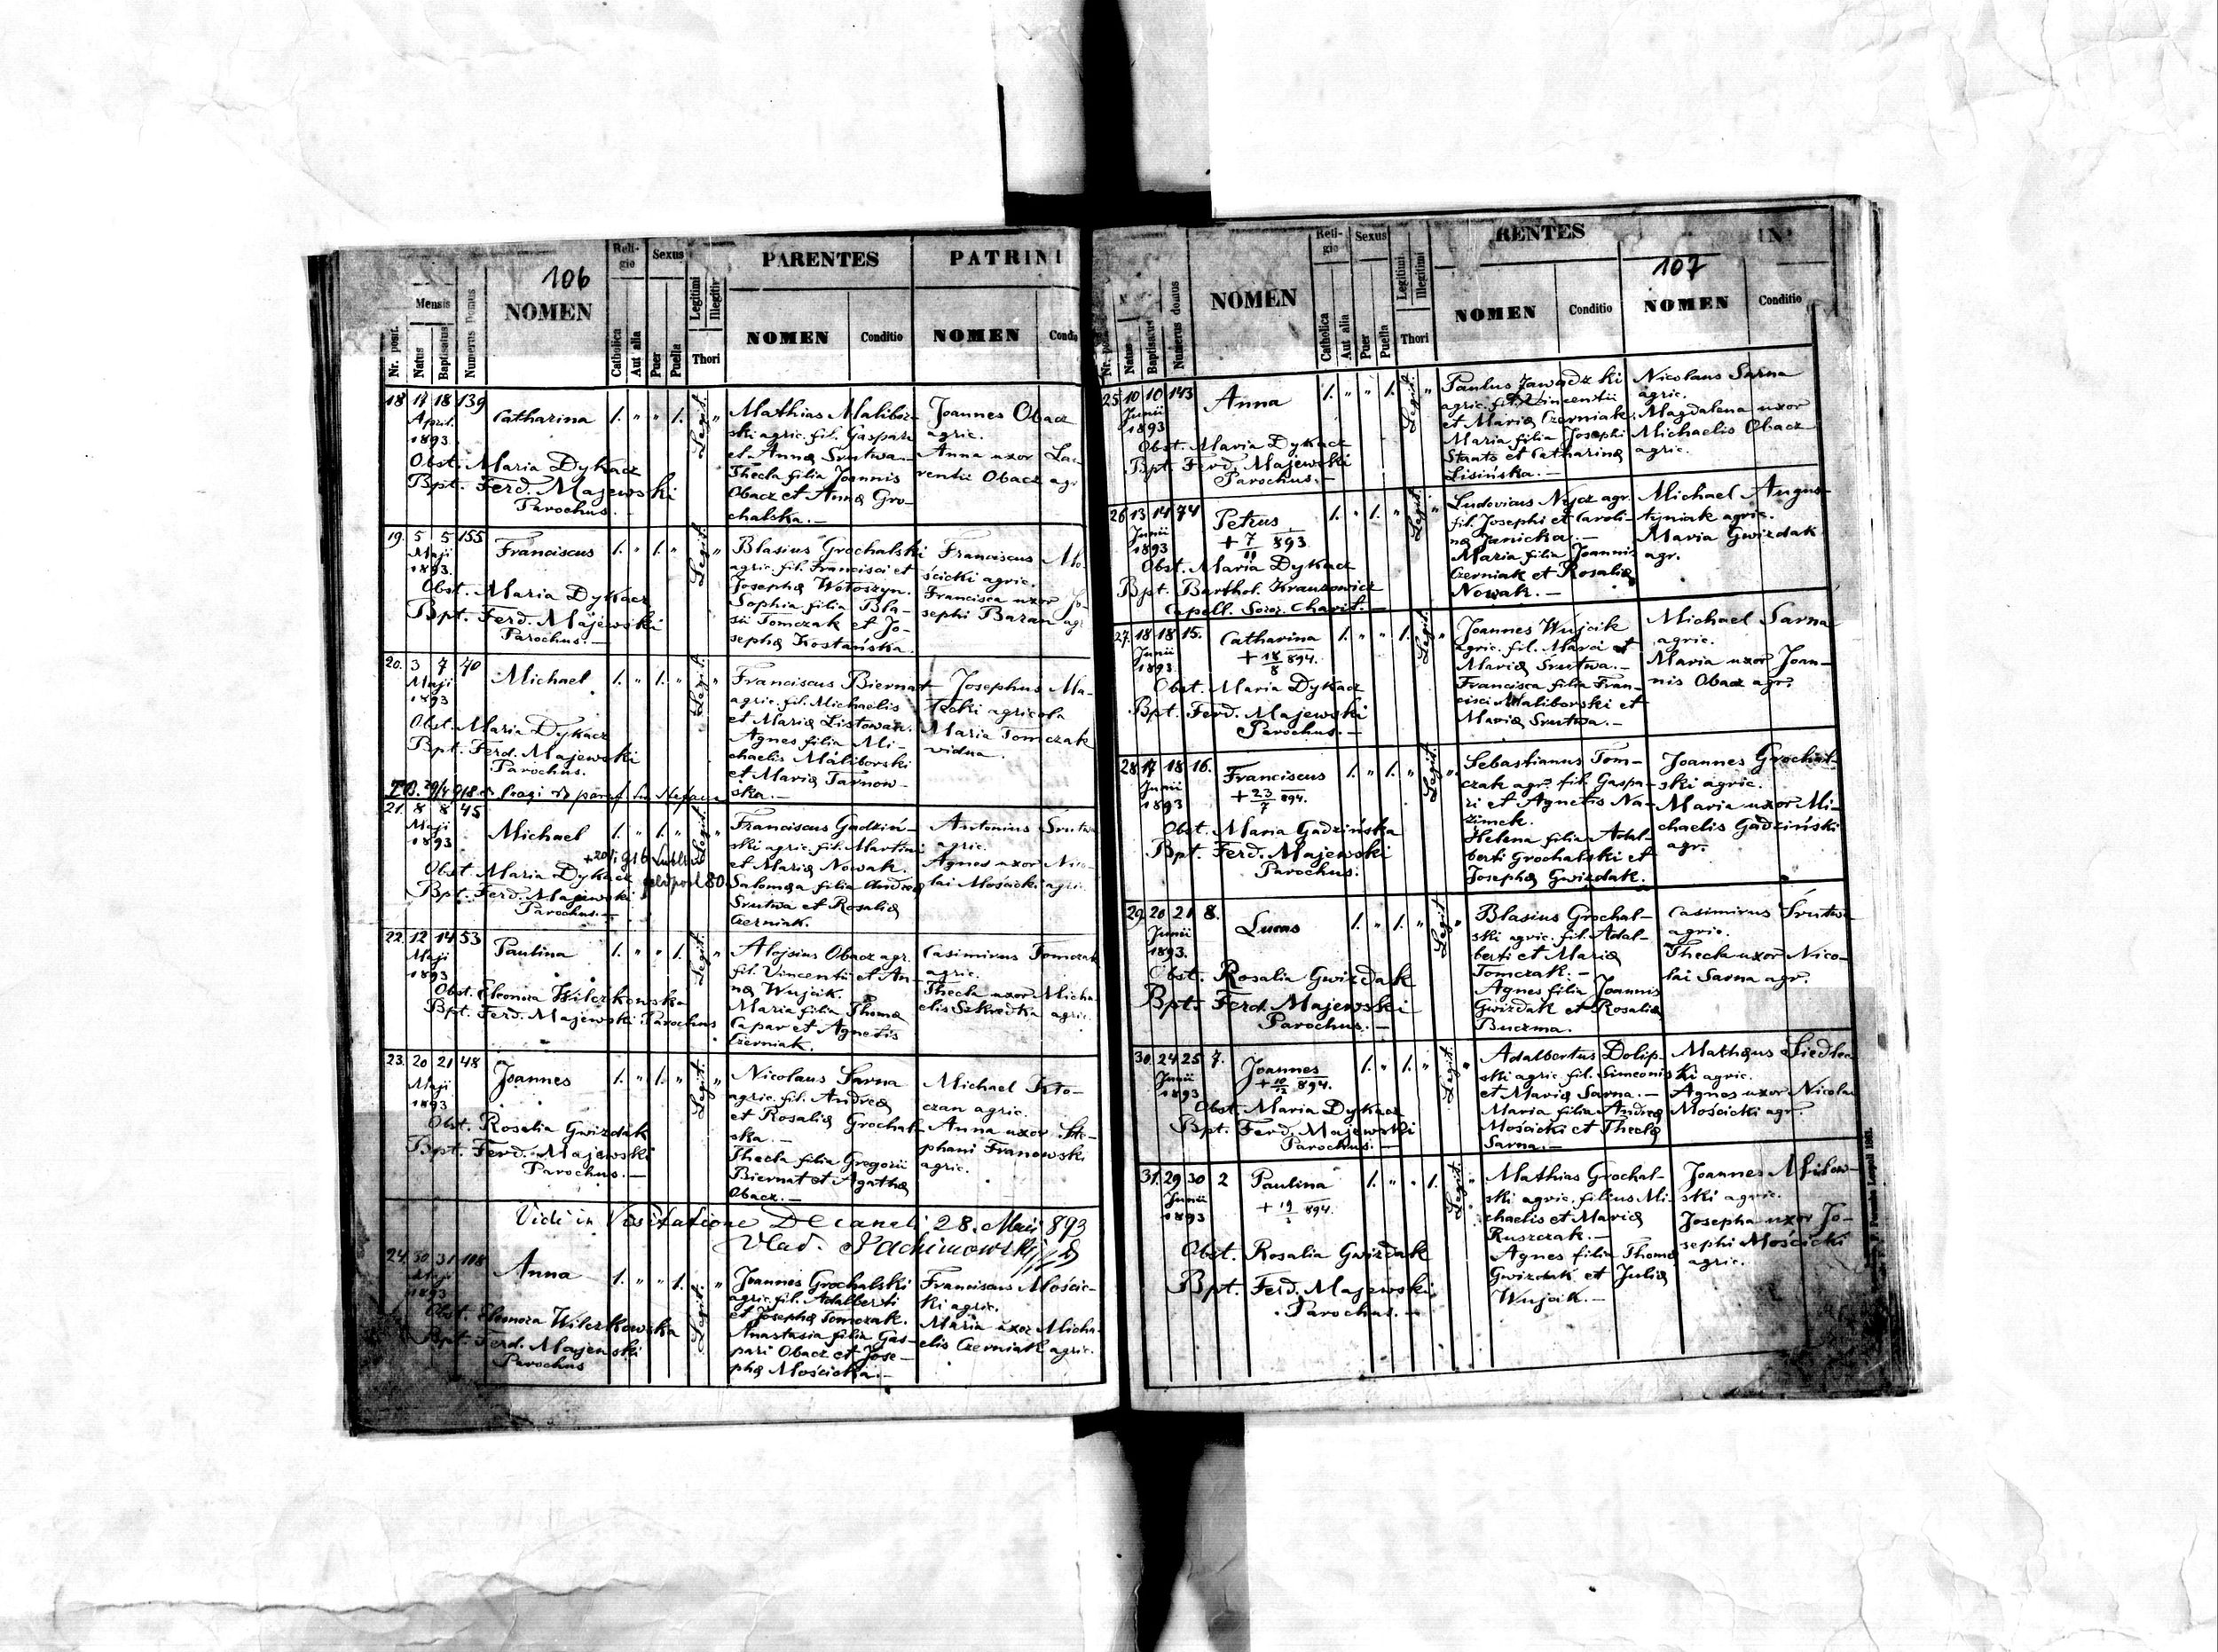 106
Mensis
Nr. post.
Natus
Baptisatus
Numerus Domus
NOMEN
Religio
Catholica
Aut alia
Sexus
Puer
Puella
Legitimi
Illegitimi
Thori
PARENTES
NOMEN
Conditio
PATRINI
NOMEN
18 17 18 139
April.
1893.
Catharina
1. " " 1. Legit. "
Obst. Maria Dykacz
Bpt. Ferd. Majewski
Parochus.
Mathias Malibor-
ski agric. fil. Gaspari
et Annæ Srutwa.—
Thecla filia Joannis
Obacz et Annæ Gro-
chalska.—
Joannes Obacz
agric.
Anna uxor Lau-
rentii Obacz agr
19. 5 5 155
Maji
1893.
Franciscus
1. " 1. " Legit. "
Obst. Maria Dykacz
Bpt. Ferd. Majewski
Parochus.—
Blasius Grochalski
agric. fil. Francisci et
Josephæ Wołoszyn.
Sophia filia Bla-
sii Tomczak et Jo-
sephæ Kostańska.
Franciscus Mo-
ścicki agric.
Francisca uxor Jo-
sephi Baran agr
20. 3 7 40
Maji
1893
Michael
1. " 1. " Legit. "
Obst. Maria Dykacz
Bpt. Ferd. Majewski
Parochus.
Franciscus Biernat
agric. fil. Michaelis
et Mariæ Listowan.
Agnes filia Mi-
chaelis Maliborski
et Mariæ Tarnow-
ska.—
Josephus Ma-
agricola
Maria Tomczak
vidua.
21. 8 8 45
Maji
1893
Michael
1. " 1. " Legit. "
Obst. Maria Dykacz
Bpt. Ferd. Majewski
Parochus.—
Franciscus Gadziń-
ski agric. fil. Martini
et Mariæ Nowak.
Salomea filia Andreæ
Srutwa et Rosaliæ
Czerniak.
Antonius Srutwa
agric.
Agnes uxor Nico-
lai Mościcki agric.
22. 12 14 53
Maji
1893
Paulina
1. " " 1. Legit. "
Obst. Eleonora Wilczkowska
Bpt. Ferd. Majewski Parochus
Aloysius Obacz agr.
fil. Vincentii et An-
næ Wujcik.
Maria filia Thomæ
Capar et Agnetis
Czerniak.
Casimirus Tomczak
agric.
Thecla uxor Micha-
elis Szkredka agric.
23. 20 21 48
Maji
1893
Joannes
1. " 1. " Legit. "
Obst. Rosalia Gwizdak
Bpt. Ferd. Majewski
Parochus.—
Nicolaus Sarna
agric. fil. Andreæ
et Rosaliæ Grochal-
ska.—
Thecla filia Gregorii
Biernat et Agathæ
Obacz.—
Michael Kto-
czan agric.
Anna uxor Ste-
phani Franowski
agric.
Vidi in Visitatione Decanali 28. Maii 893
24. 30 31 108
Maji
1893
Anna
1. " " 1. Legit. "
Obst. Eleonora Wilczkowska
Bpt. Ferd. Majewski
Parochus
Joannes Grochalski
agric. fil. Adalberti
et Josephæ Tomczak.
Anastasia filia Gas-
pari Obacz et Jose-
phæ Mościcka.—
Franciscus Mościc-
ki agric.
Maria uxor Micha-
elis Czerniak agric.
107
Natus
Baptisatus
Numerus domus
NOMEN
Religio
Catholica
Aut alia
Sexus
Puer
Puella
Legitimi
Illegitimi
Thori
RENTES
NOMEN
Conditio
IN
NOMEN
Conditio
25 10 10 143
Junii
1893
Anna
1. " " 1. Legit. "
Obst. Maria Dykacz
Bpt. Ferd. Majewski
Parochus.—
Paulus Zawadzki
agric. fil. Vincentii
et Mariæ Czerniak.
Maria filia Josephi
Strato et Catharinæ
Lisińska.—
Nicolaus Sarna
agric.
Magdalena uxor
Michaelis Obacz
agric.
26 13 14 74
Junii
1893
Petrus
+ 7/11 893
1. " 1. " Legit. "
Obst. Maria Dykacz
Bpt. Barthol. Krausowicz
Capell. Soror. Charit.—
Ludovicus Nycz agr.
fil. Josephi et Caroli-
næ Janicka.—
Maria filia Joannis
Czerniak et Rosaliæ
Nowak.—
Michael Augus-
tyniak agric.
Maria Gwizdak
agr.
27. 18 18 15.
Junii
1893
Catharina
+ 18/8 894.
1. " " 1. Legit. "
Obst. Maria Dykacz
Bpt. Ferd. Majewski
Parochus.—
Joannes Wujcik
agric. fil. Marci et
Mariæ Srutwa.—
Francisca filia Fran-
cisci Maliborski et
Mariæ Srutwa.—
Michael Sarna
agric.
Maria uxor Joan-
nis Obacz agr.
28. 17 18 16.
Junii
1893
Franciscus
+ 23/7 894.
1. " 1. " Legit. "
Obst. Maria Gadzińska
Bpt. Ferd. Majewski
Parochus.
Sebastianus Tom-
czak agr. fil. Gaspa-
ri et Agnetis Na-
zimek.
Helena filia Adal-
berti Grochalski et
Josephæ Gwizdak.
Joannes Grochal-
ski agric.
Maria uxor Mi-
chaelis Gadziński
agr.
29. 20 21 8.
Junii
1893.
Lucas
1. " 1. " Legit. "
Obst. Rosalia Gwizdak
Bpt. Ferd. Majewski
Parochus.—
Blasius Grochal-
ski agric. fil. Adal-
berti et Mariæ
Tomczak.—
Agnes filia Joannis
Gwizdak et Rosaliæ
Buczma.
Casimirus Srutwa
agric.
Thecla uxor Nico-
lai Sarna agr.
30. 24 25 7.
Junii
1893
Joannes
+ 10/12 894.
1. " 1. " Legit. "
Obst. Maria Dykacz
Bpt. Ferd. Majewski
Parochus.—
Adalbertus Dolip-
ski agric. fil. Simeonis
et Mariæ Sarna.—
Maria filia Andreæ
Mościcki et Theclæ
Sarna.—
Mathæus Siedlec-
ki agric.
Agnes uxor Nicolai
Mościcki agr.
31. 29 30 2
Junii
1893
Paulina
894.
1. " " 1. Legit. "
Obst. Rosalia Gwizdak
Bpt. Ferd. Majewski
Parochus.—
Mathias Grochal-
ski agric. filius Mi-
chaelis et Mariæ
Ruszczak.—
Agnes filia Thomæ
Gwizdak et Juliæ
Wujcik.—
Joannes
ski agric.
Josepha uxor Jo-
sephi Mościcki
agric.